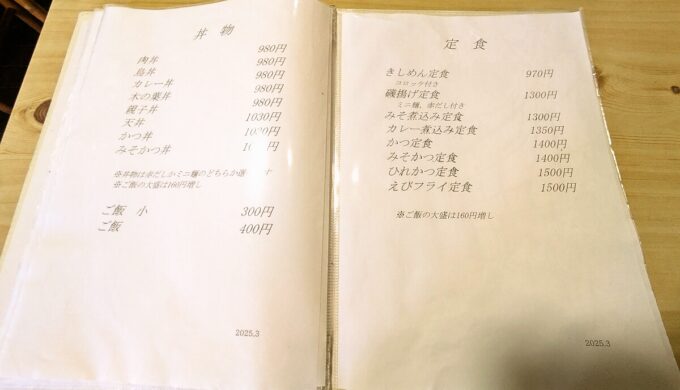 丼 物
肉丼 980円
鳥丼 980円
カレー丼 980円
木の葉丼 980円
親子丼 980円
天丼 1030円
かつ丼
みそかつ丼
※丼物は赤だしかミニ麺のどちらか
※ご飯の大盛は160円増し
ご飯 小 300円
ご飯 400円
2025.3
定 食
きしめん定食 970円
コロッケ付き
磯揚げ定食 1300円
ミニ麺、赤だし付き
みそ煮込み定食 1300円
カレー煮込み定食 1350円
かつ定食 1400円
みそかつ定食 1400円
ひれかつ定食 1500円
えびフライ定食 1500円
※ご飯の大盛は160円増し
2025.3